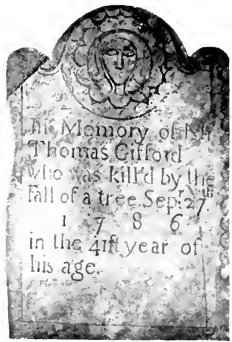 In Memory of Mr
Thomas Gifford
who was kill'd by the
Fall of a tree Sep: 27th
1 7 8 6
in the 41st year of
his age.